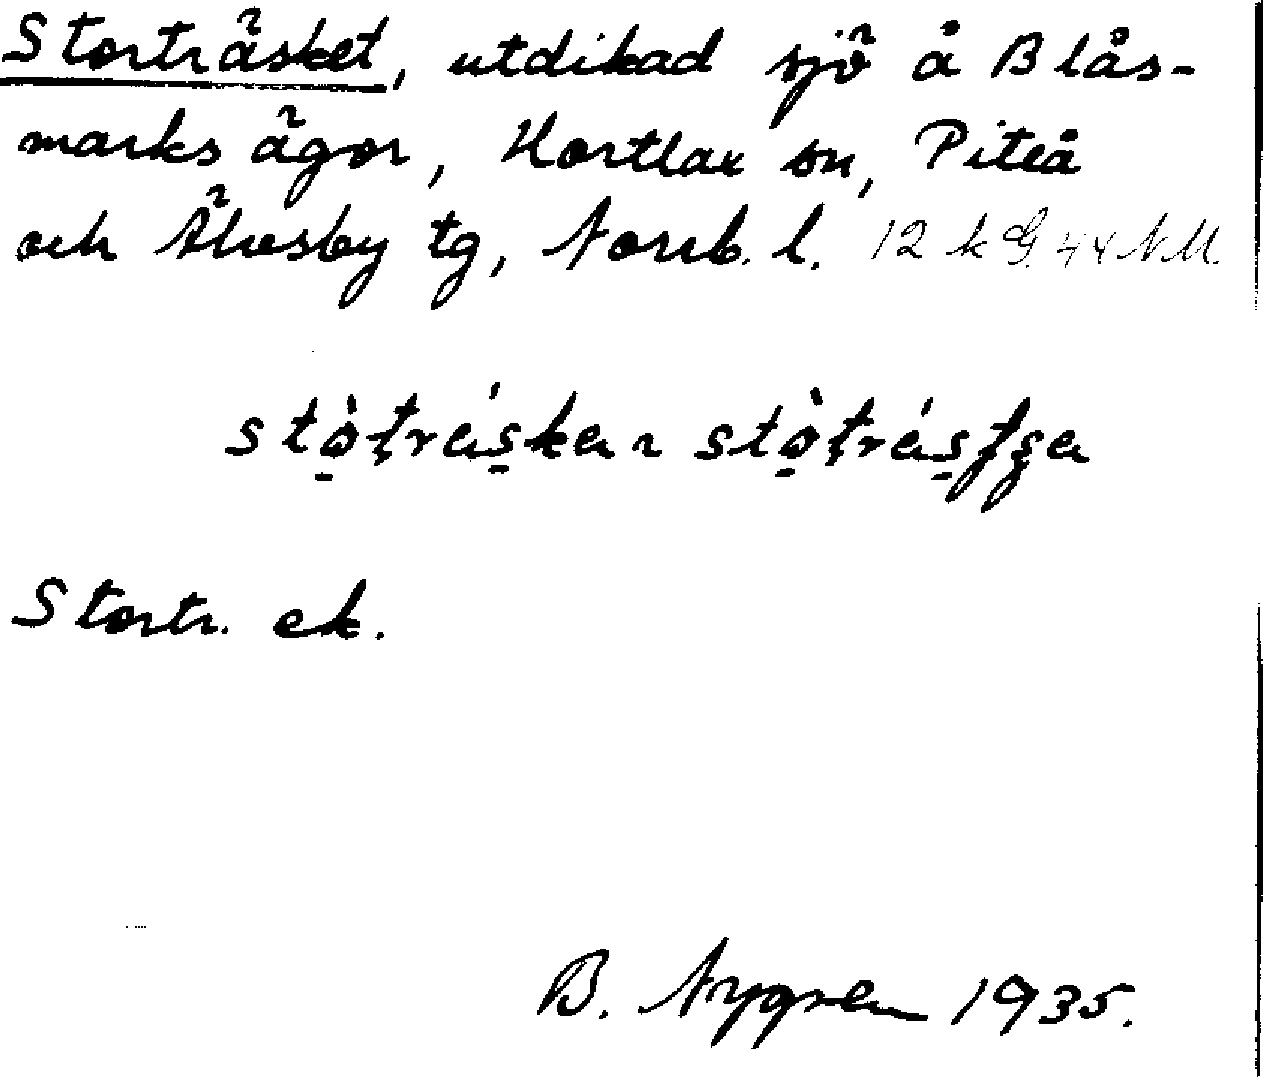 Storträsket, utdikad sjö å Blås-
marks ägor, Hortlax sn, Piteå
och Älvsby tg, Norrb. l. 12 k G. 44 N.M.
Stortr. ek.
B. Nygren 1935.